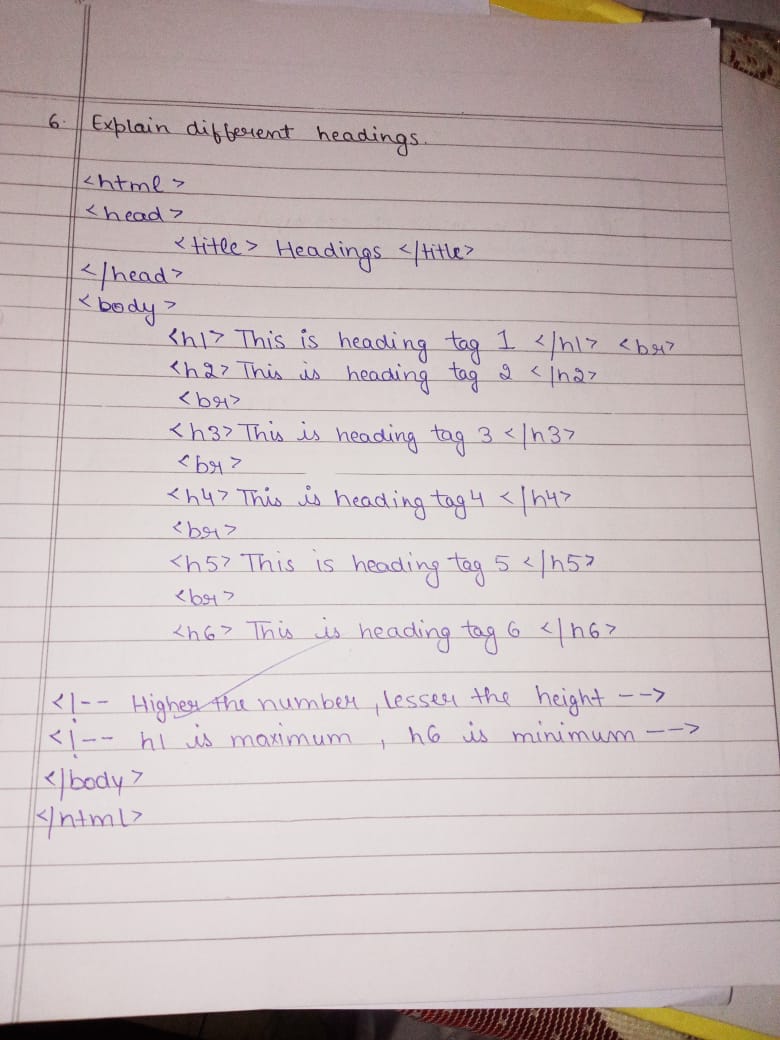 6. Explain different headings.
<html>
<head>
<title> Headings </title>
</head>
<body>
<h1> This is heading tag 1 </h1> <br>
<h2> This is heading tag 2 </h2>
<br>
<h3> This is heading tag 3 </h3>
<br>
<h4> This is heading tag 4 </h4>
<br>
<h5> This is heading tag 5 </h5>
<br>
<h6> This is heading tag 6 </h6>
<!-- Higher the number, lesser the height -->
<!-- h1 is maximum, h6 is minimum -->
</body>
</html>